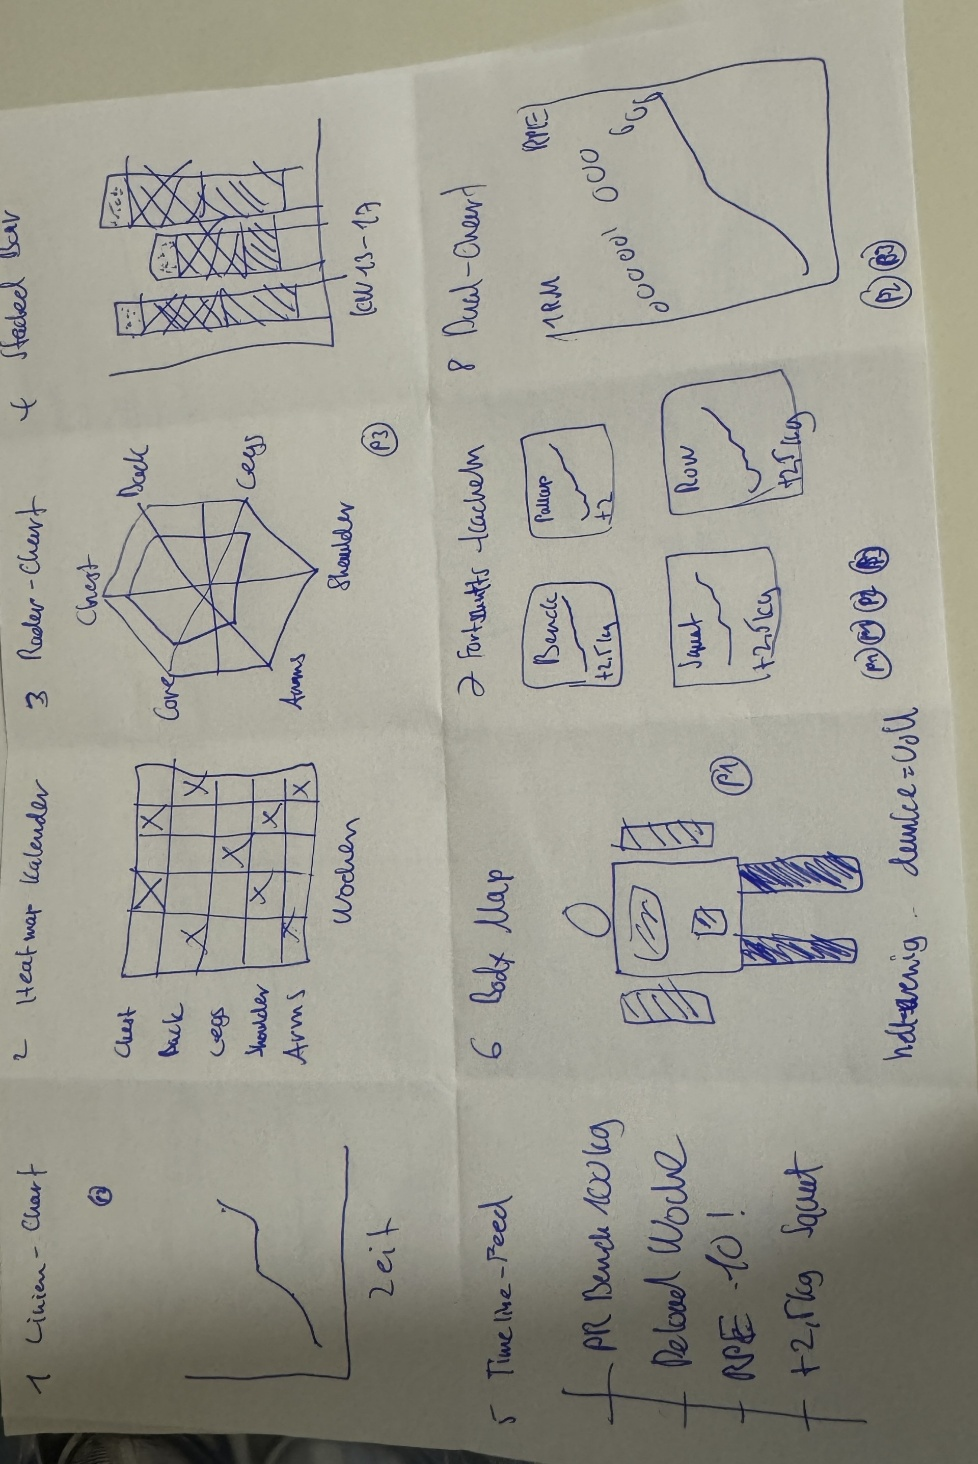 1 Linien-Chart
P2
Zeit
2 Heatmap Kalender
Chest
Back
Legs
Shoulder
Arms
Wochen
3 Radar-Chart
Chest
Back
Legs
Shoulder
Arms
Core
P3
4 Stacked Bar
KW 13-17
5 Timeline-Feed
PR Bench 100kg
Deload Woche
RPE -10!
+2,5kg Squat
6 Body Map
P1
wenig dunkel=voll
7 Fortschritts-kacheln
Bench
+2.5kg
Pullup
+2
Squat
+2.5kg
Row
+2,5kg
P1 P2 P3
8 Dual-Chart
1RM
RPE
P2 P3